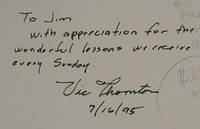 To Jim
with appreciation for the
wonderful lessons we receive
every Sunday.
Vic Thornton
7/16/95